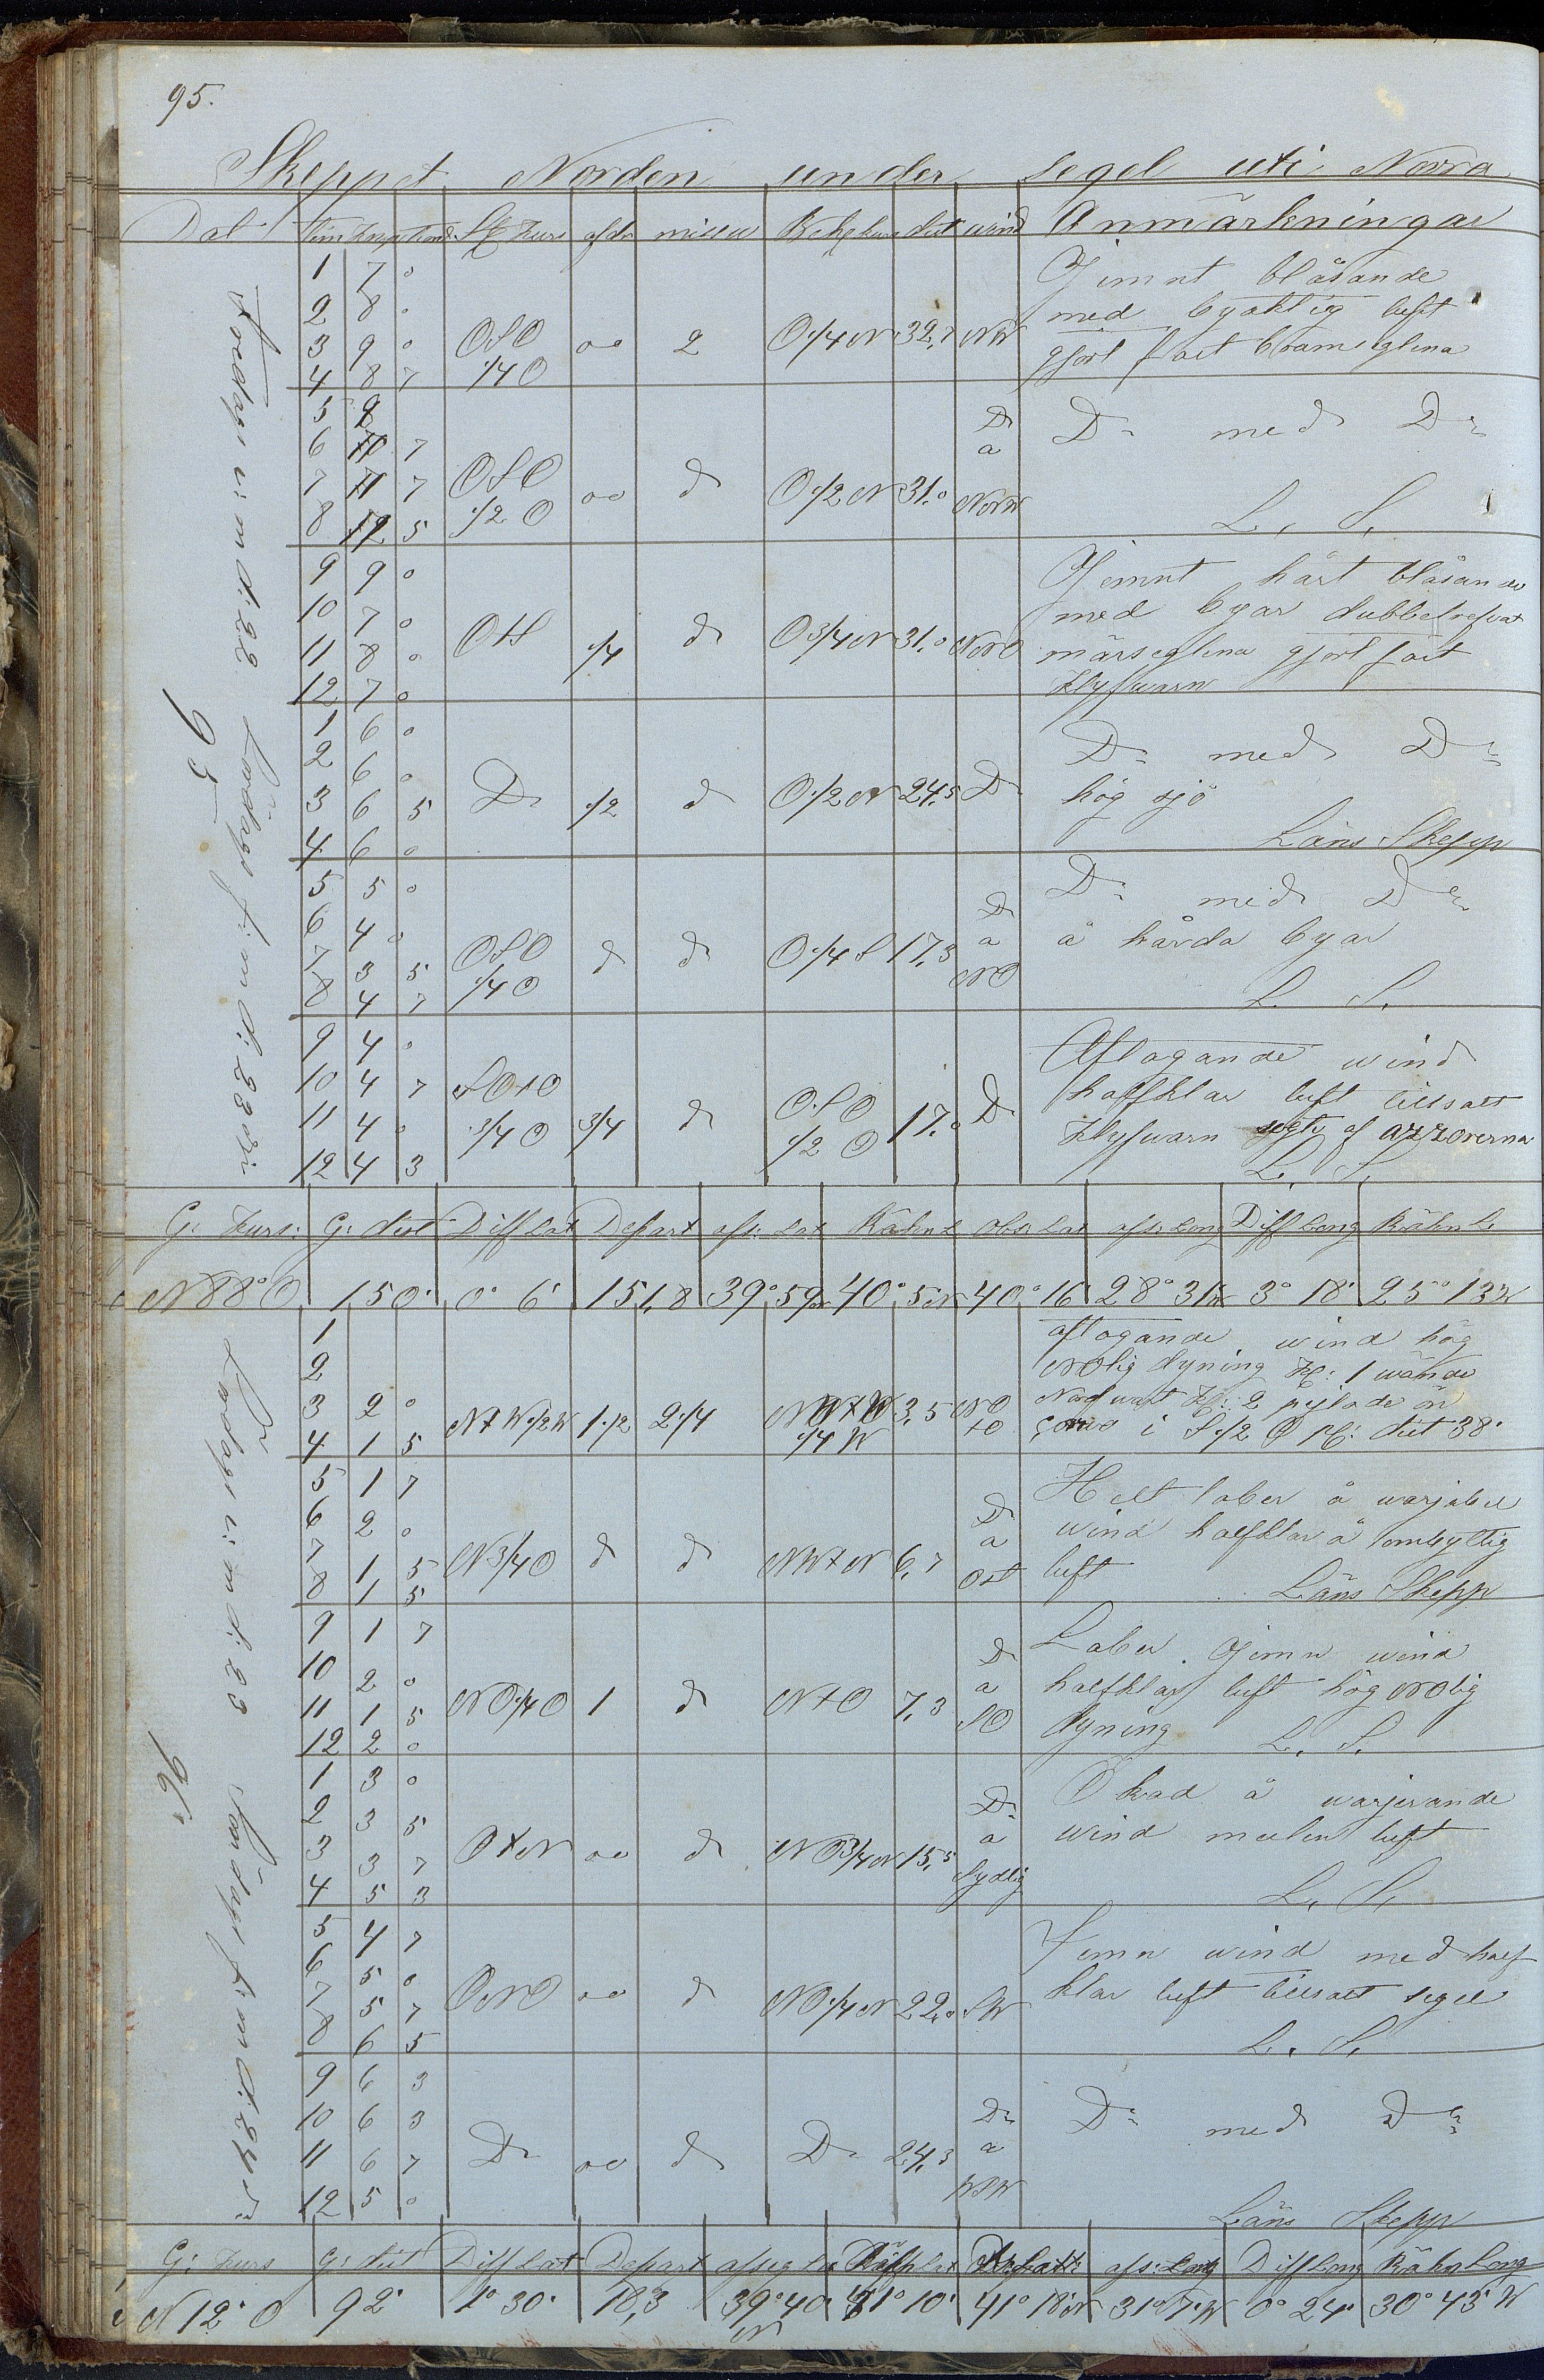 95.
Skeppet Norden under segel uti Norra
Dat tim knp St Kurs afdr missv Beh kurs dist wind Anmärkningar
Fredagen e: m d: 22
1 7 0 Jemnt blåsande
2 8 0 med byaktig luft
3 9 0 OSO 00 2 O 1/4 N 32,7 NW gjort fast bramseglena
4 8 7 1/4 O
5 9 D: med D:
6 10 7 D: a
7 11 7 OSO 00 d O 1/2 N 31,0 NNW
8 12 5 1/2 O L. S.
9 9 0 Jemnt hårt blåsande
10 7 0 med byar dubbelrefvat
11 8 0 1/4 d O 3/4 N 31,0 NNO märseglena gjort fast
12 7 0 Klyfwarn
95
Lördagen f: m d: 23
1 6 0 D: med D:
2 6 0
3 6 5 D 1/2 d O 1/2 N 24,5 D hög sjö
4 6 0 Läns Skepp
5 5 0 D: med D:
6 4 0 D a å hårda byar
7 3 5 OSO d d O 1/4 S 17,3 NO
8 4 7 1/4 O L. S.
9 4 0 Aftagande wind
10 4 7 SO+O halfklar luft tillsatt
11 4 0 3/4 O 3/4 d OSO 1/2 O 17,0 D Klyfwarn segte af azzorerna
12 4 3 L. S.
G: Kurs: G: dist Diff Lat Depart afs: Lat Räkn L Obs: Lat afs: Long Diff Long Räkn L:
N 88° O 150' 0° 6' 151,8 39° 59 N 40° 5 N 40° 16 28° 31 W 3° 18' 25° 13 W
Lördagen e: m d: 23
1 aftagande wind hög
2 NOlig dyning Kl: 1 wände
3 2 0 N+W 1/2 W 1 1/2 2 1/4 3,5 NO Nordwart Kl: 2 pejlade ön
4 1 5 1/4 W +O Corvo i S 1/2 O dist 38'
5 1 7 Helt laber å warjabel
6 2 0 D a wind halfklar å ombyttig
7 1 5 N 3/4 O d d NW+N 6,7 Ost luft
8 1 5 Läns Skepp
9 1 7 Laber Jemn wind
10 2 0 D a halfklar luft hög NOlig
11 1 5 NO 1/4 O 1 d N+O 7,3 SO dyning
12 2 0 L. S.
96.
Söndagen f: m d: 24
1 3 0 Ökad å warjerande
2 3 5 D: a wind mulen luft
3 3 7 O+N 00 d NO 3/4 N 15,5 Sydlig
4 5 3 L. S.
5 4 7 Jemn wind med half
6 5 0 klar luft tillsatt segel
7 5 7 ONO 00 d NO 1/4 N 22,0 SW
8 6 5 L. S.
9 6 3
10 6 3 D: D: med D:
11 6 7 D 00 d D 24,3 a
12 5 0 WSW Läns Skepp
G: Kurs G: dist Diff Lat Depart afseg La afs: Long Diff Long Räkn Long
N 12° O 92' 1° 30' 18,3 39° 40' N 41° 10' 41° 18' N 31° 7' W 0° 24' 30° 43' W